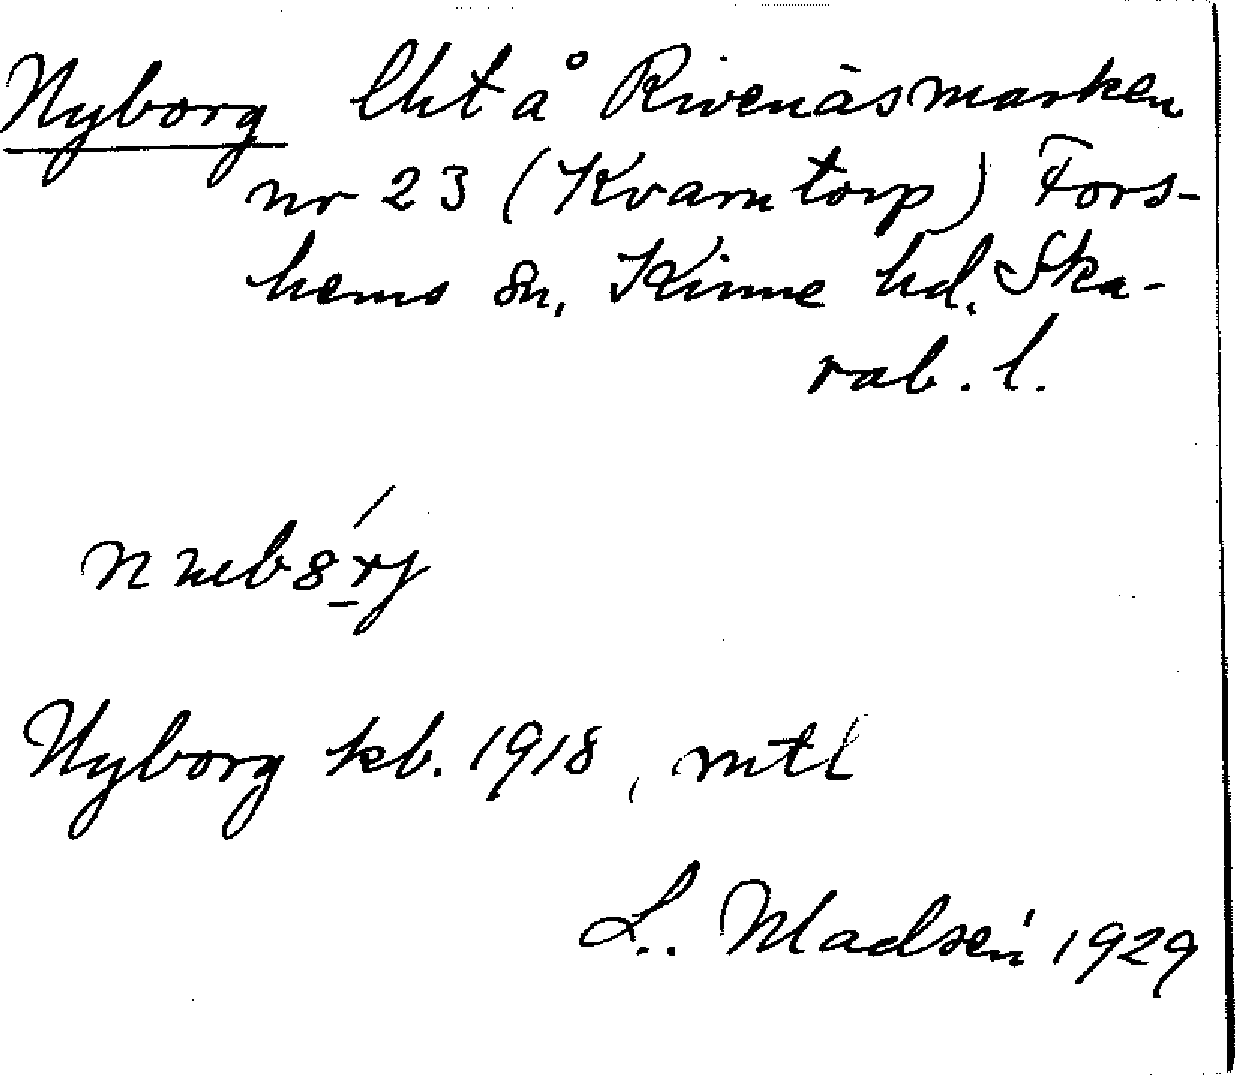 Nyborg lht å Rivenäsmarken
nr 23 (Kvarntorp) Fors-
hems sn, Kinne hd. Ska-
rab. l.
Nyborg kb. 1918, mtl
L. Madsén 1929